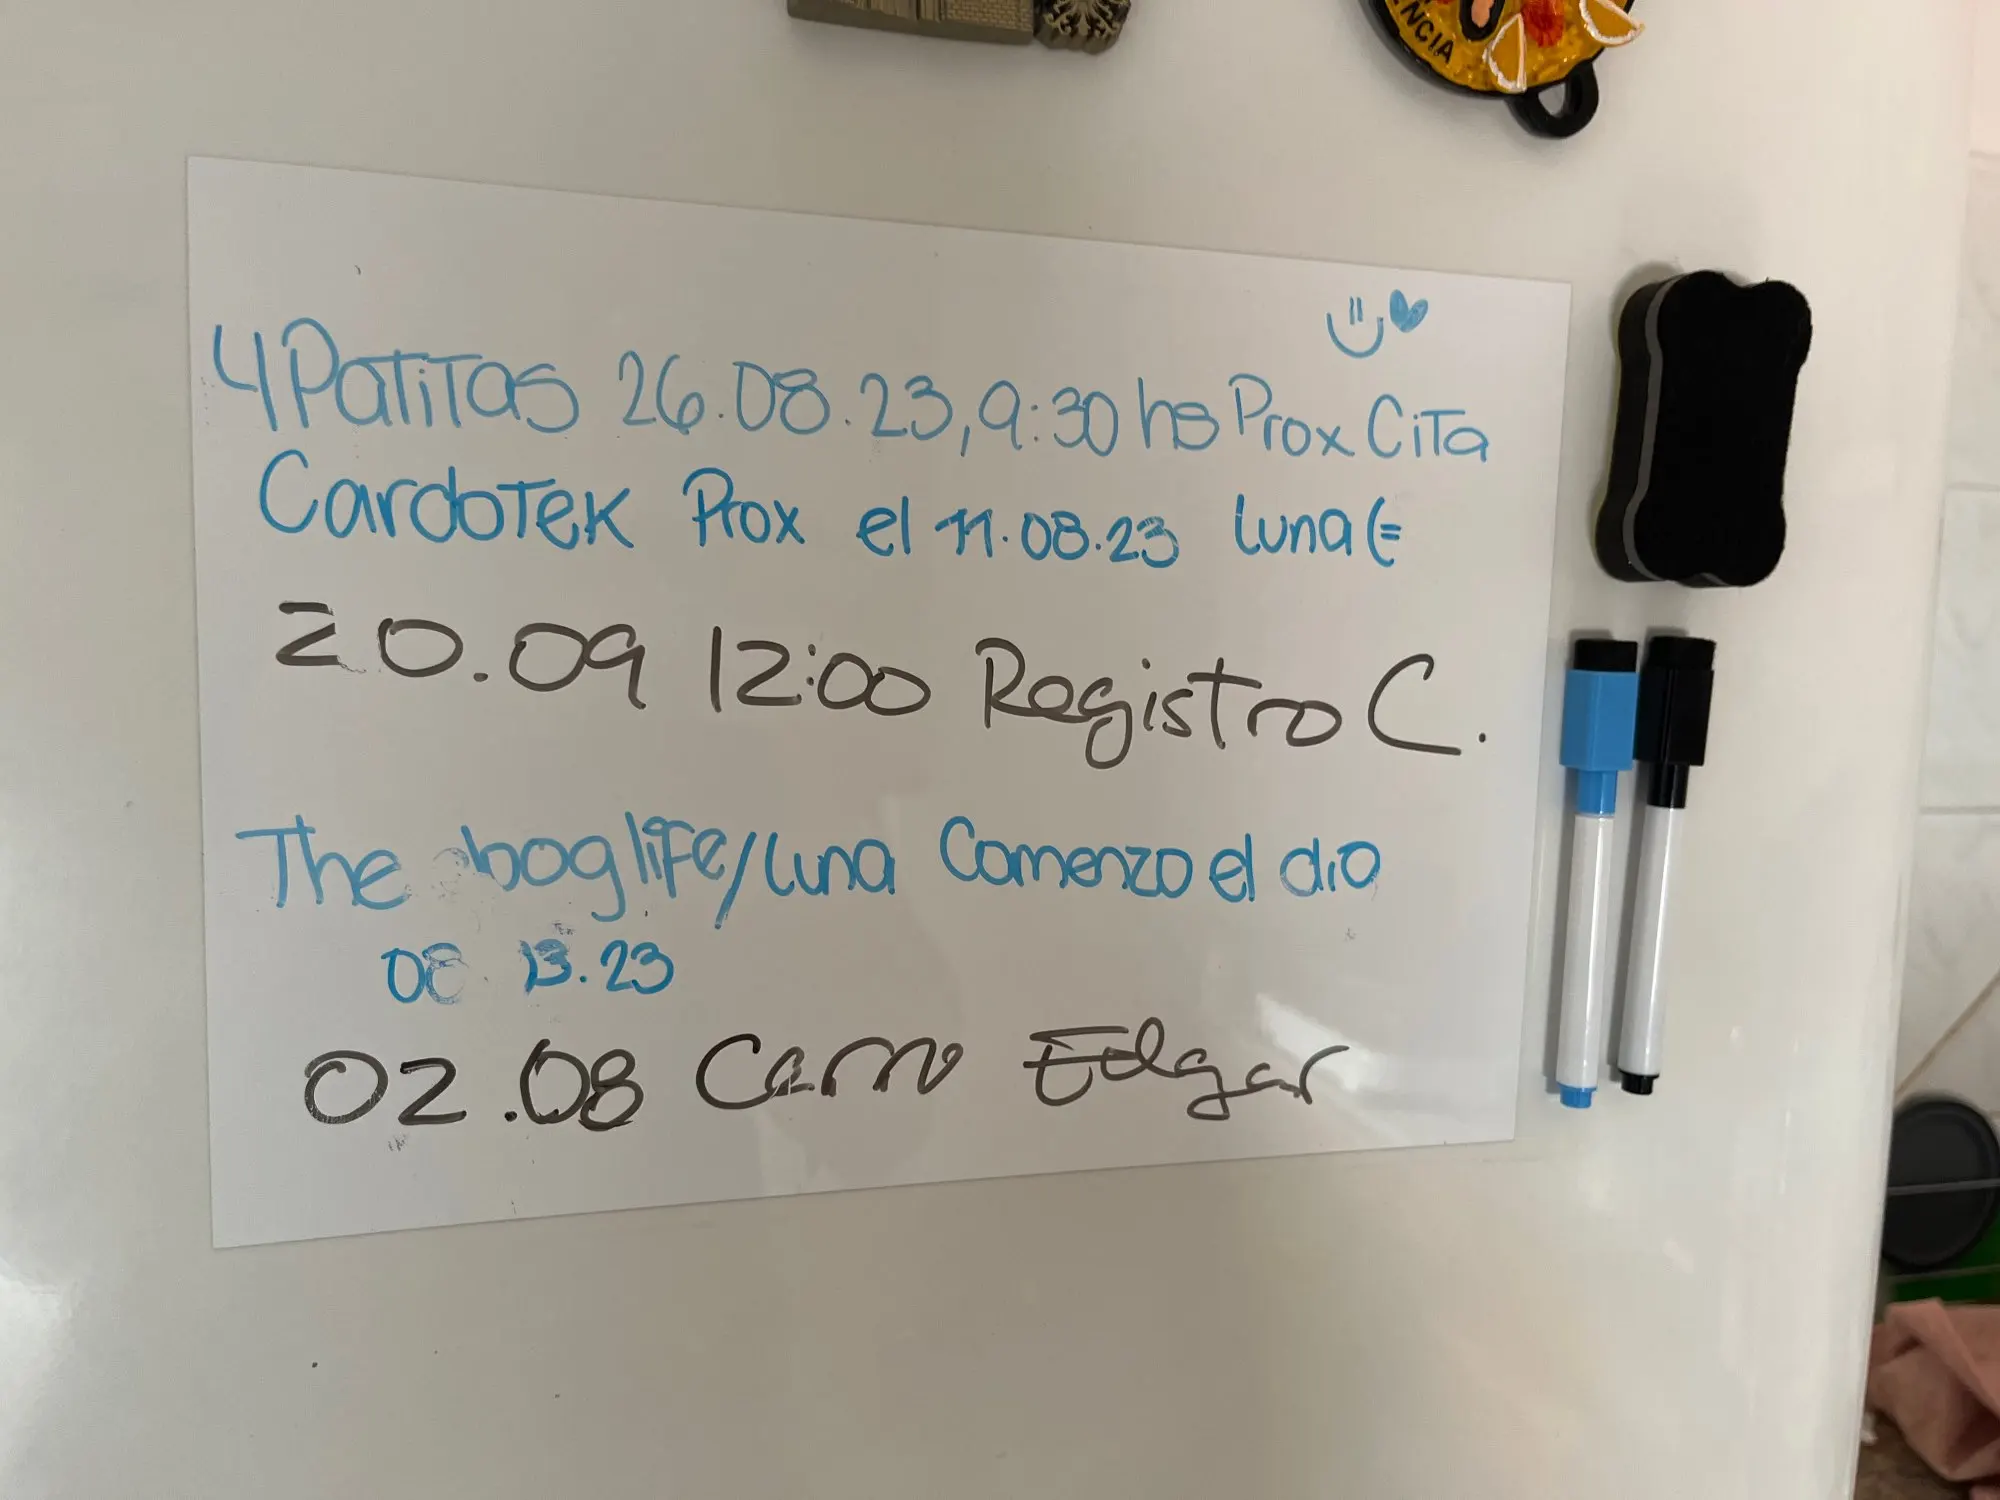 NCIA
4Patitas 26.08.23, 9:30 hs Prox Cita
Cardotek Prox el 11.08.23 Luna (=
20.09 12:00 Registro C.
The boglife/Luna Comenzo el dia
08 13.23
02.08 Carro Edgar